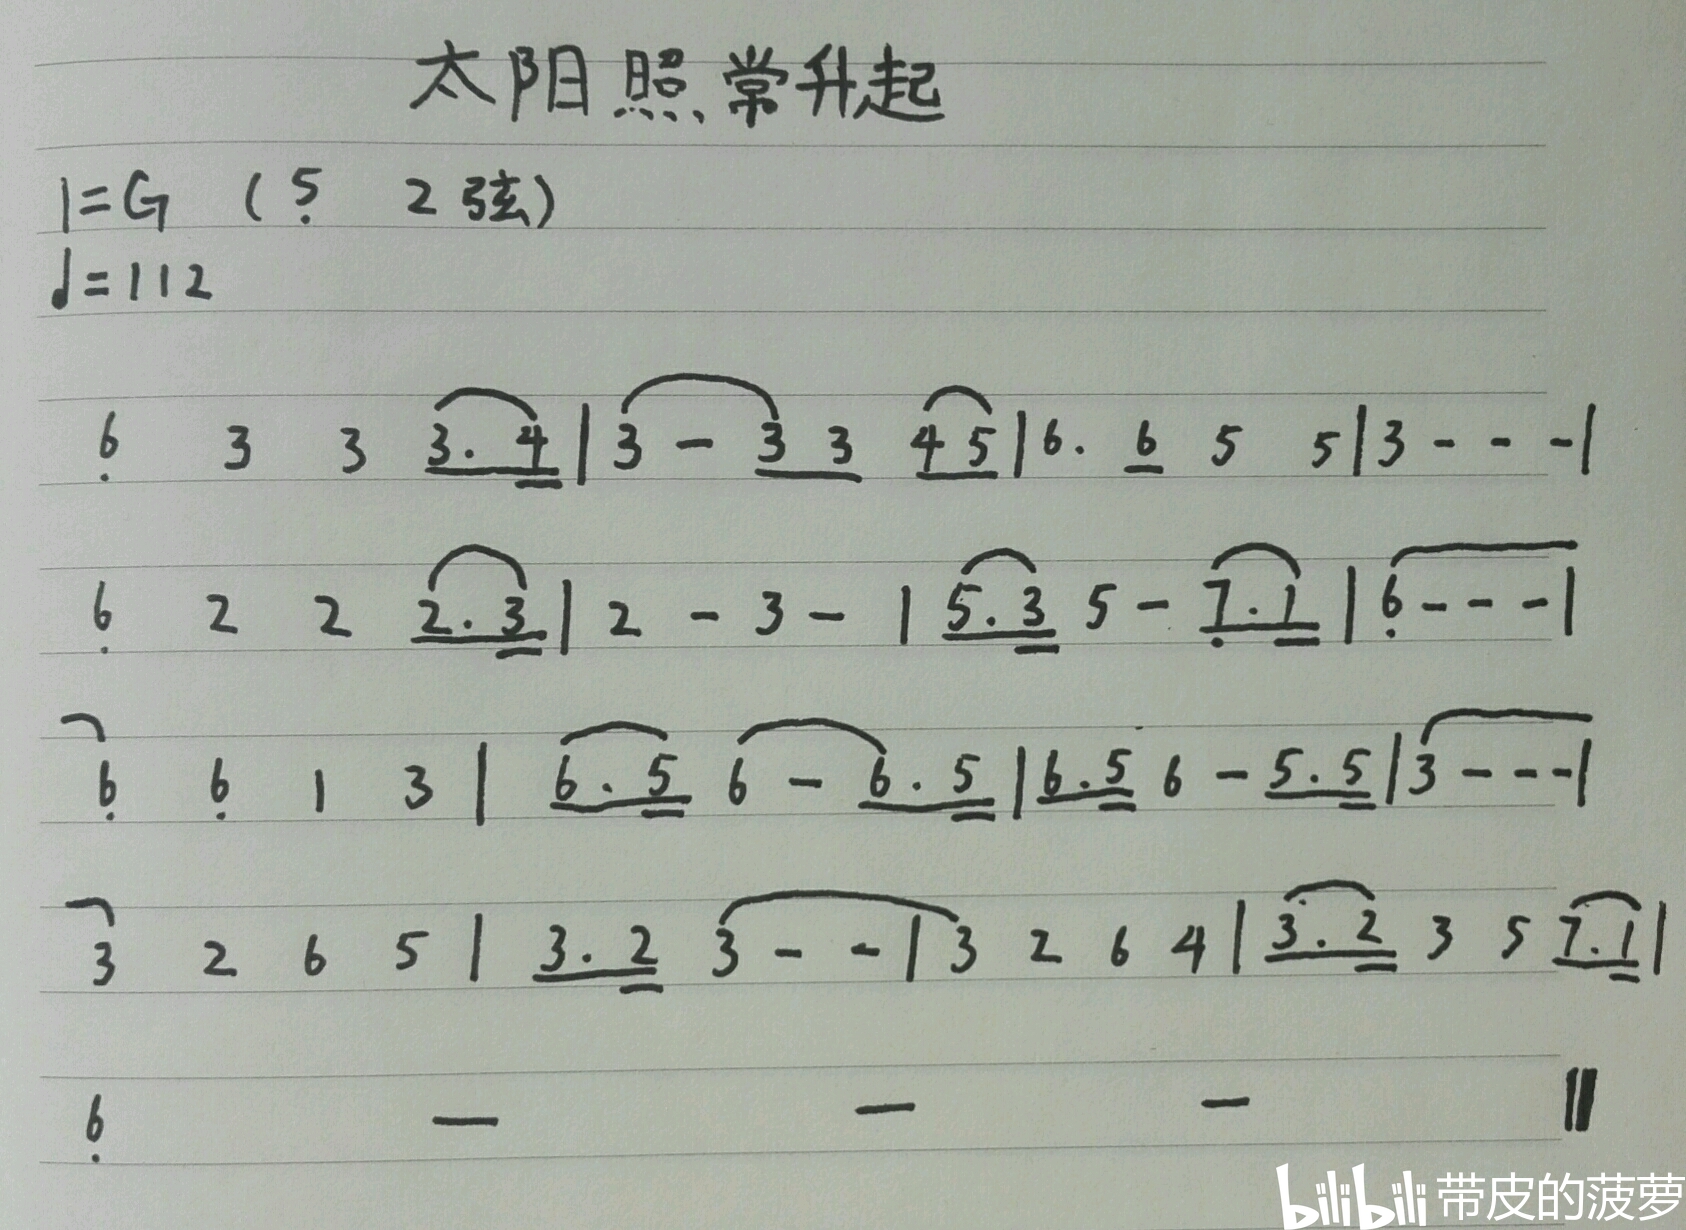 太阳照常升起
1=G (5̣ 2弦)
♩=112
6̣ 3 3 3. 4 | 3 - 3 3 4 5 | 6. 6 5 5 | 3 - - - |
6̣ 2 2 2. 3 | 2 - 3 - | 5. 3 5 - 7̣. 1 | 6̣ - - - |
6̣ 6̣ 1 3 | 6. 5 6 - 6. 5 | 6. 5 6 - 5. 5 | 3 - - - |
3 2 6 5 | 3. 2 3 - - | 3 2 6 4 | 3. 2 3 5 7. 1 |
6̣ - - - ‖
bilibili 带皮的菠萝